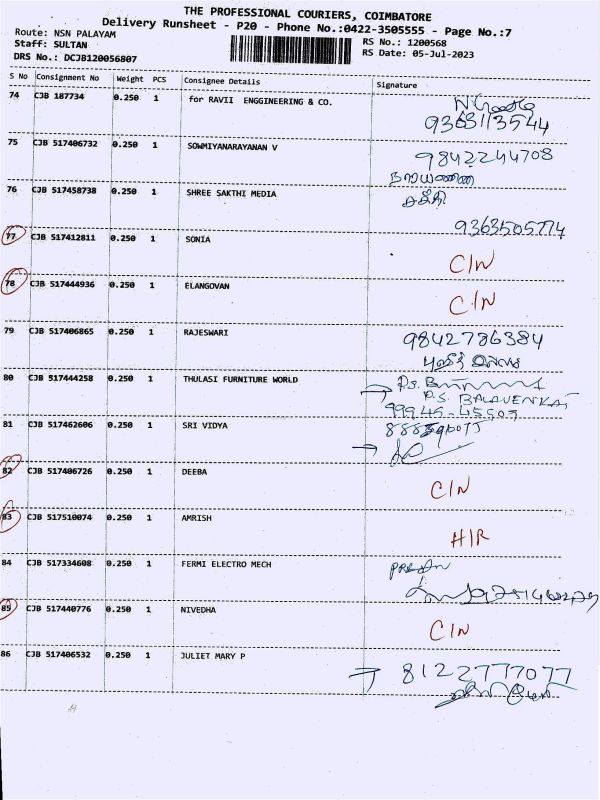 THE PROFESSIONAL COURIERS, COIMBATORE
Delivery Runsheet - P20 - Phone No.:0422-3505555 - Page No.:7
Route: NSN PALAYAM
RS No.: 1200568
Staff: SULTAN
RS Date: 05-Jul-2023
DRS No.: DCJB120056807
S No Consignment No Weight PCS Consignee Details Signature
74 CJB 187734 0.250 1 for RAVII ENGGINEERING & CO.
9363113544
75 CJB 517406732 0.250 1 SOWMIYANARAYANAN V 9842244708
76 CJB 517458738 0.250 1 SHREE SAKTHI MEDIA
9363505774
77 CJB 517412811 0.250 1 SONIA
C/N
78 CJB 517444936 0.250 1 ELANGOVAN
C/N
79 CJB 517406865 0.250 1 RAJESWARI 9842786384
80 CJB 517444258 0.250 1 THULASI FURNITURE WORLD
P.S. BALAVENKAT
99945-45505
81 CJB 517462606 0.250 1 SRI VIDYA
82 CJB 517406726 0.250 1 DEEBA
C/N
83 CJB 517510074 0.250 1 AMRISH
H/R
84 CJB 517334608 0.250 1 FERMI ELECTRO MECH
85 CJB 517440776 0.250 1 NIVEDHA
C/N
86 CJB 517406532 0.250 1 JULIET MARY P 8122777077